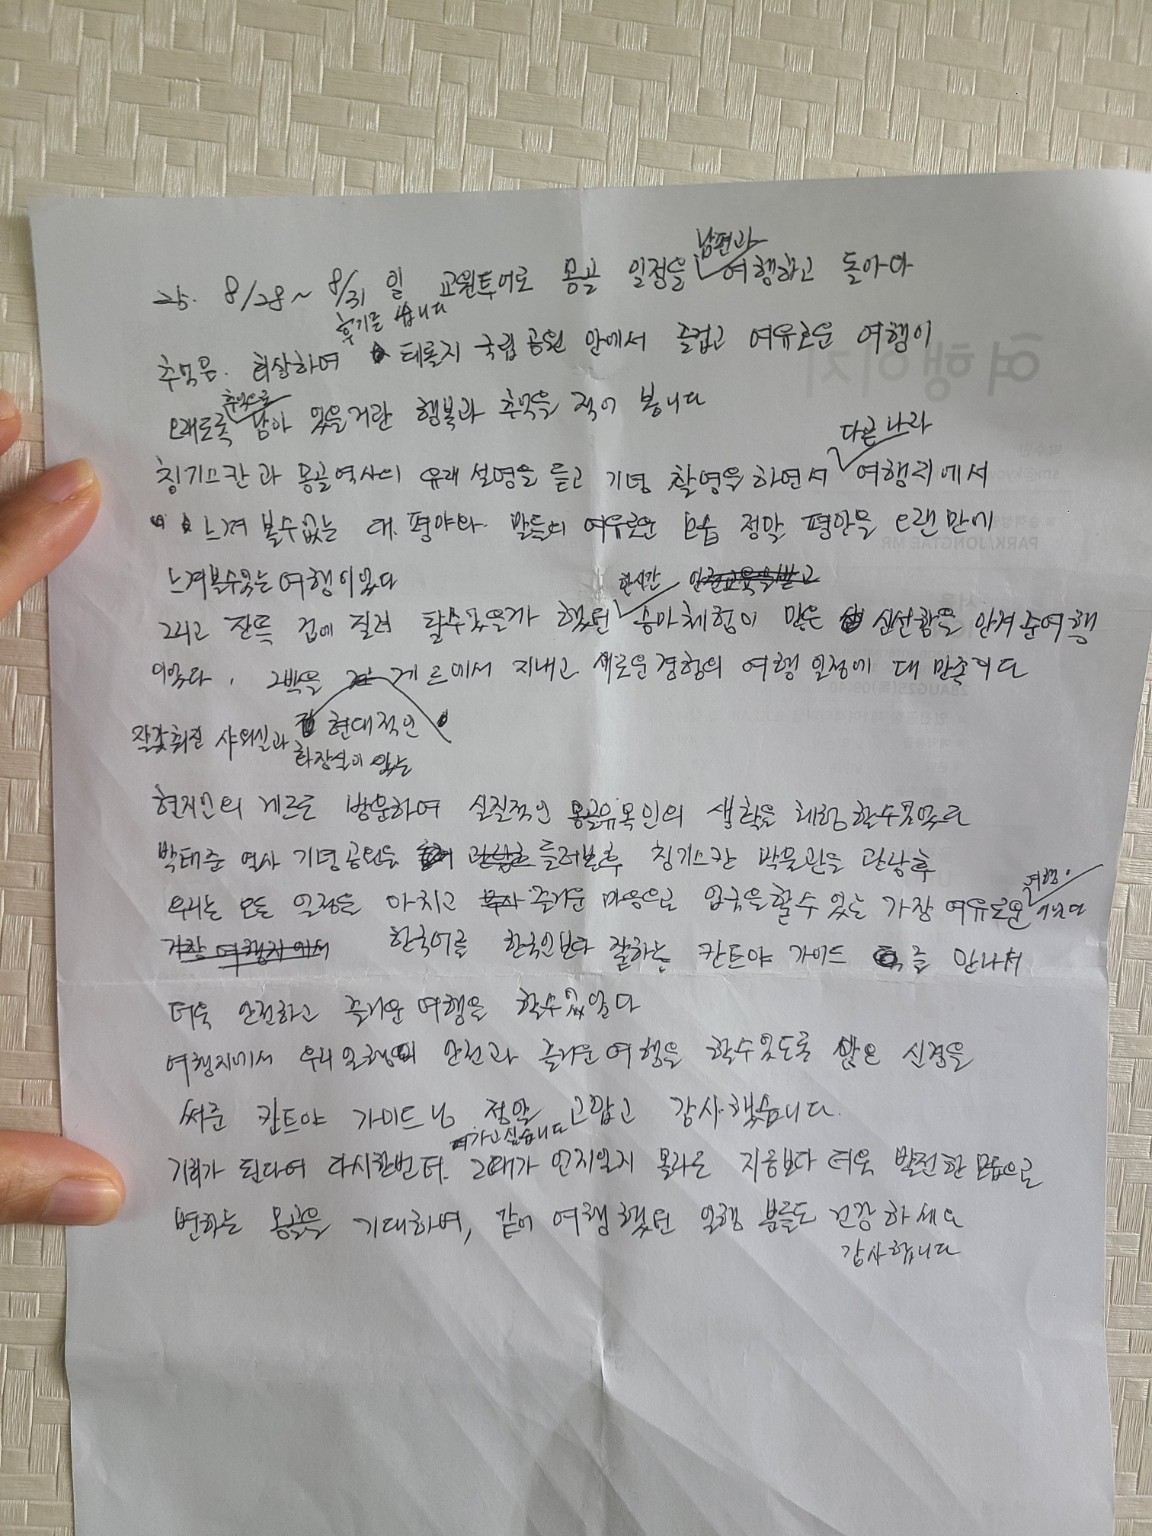 25. 8/28 ~ 8/31 일 교원투어로 몽골 일정을 남편과 여행하고 돌아와
후기를 씁니다
추억을 회상하여 테를지 국립공원 안에서 즐겁고 여유로운 여행이
오래도록 추억으로 남아 있을거란 행복과 추억을 적어 봅니다
다른 나라
칭기스칸과 몽골역사의 유래 설명을 듣고 기념 촬영을 하면서 여행지에서
느껴 볼수없는 대.평야와 말들의 여유로운 모습 정말 평안을 오랜만에
느껴볼수있는 여행이었다
한시간
그리고 잔뜩 겁에 질려 탈수있을까 했던 승마체험이 많은 신선함을 안겨준여행
이었다. 2박을 게르에서 지내고 새로운경험의 여행 일정에 대 만족이다
잘갖춰진 샤워실과 현대적인
화장실이 있는
현지인의 게르를 방문하여 실질적인 몽골유목인의 생활을 체험할수있었다
박태준 역사 기념공원을 들러본후 칭기스칸 박물관을 관람후
여행.
우리는 모든 일정을 마치고 즐거운 마음으로 입국을할수 있는 가장 여유로운 이었다
한국어를 한국인보다 잘하는 칸트야 가이드 를 만나서
더욱 안전하고 즐거운여행을 할수있었다
여행지에서 우리일행의 안전과 즐거운여행을 할수있도록 많은 신경을
써준 칸트야 가이드님 정말 고맙고 감사했습니다.
가고싶습니다
기회가 된다며 다시한번더. 그때가 언지일지 몰라도 지금보다 더욱 발전한모습으로
변하는 몽골을 기대하며, 같이 여행했던 일행 분들도 건강하세요
감사합니다
여행이지
PARK/JONGTAE MR